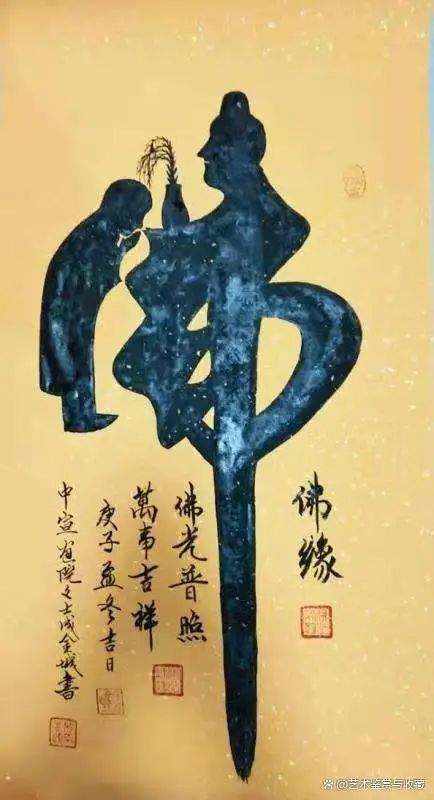 佛
佛緣
佛光普照
萬事吉祥
庚子孟冬吉日
中宣書院院士成金城書
@艺术鉴赏与收藏